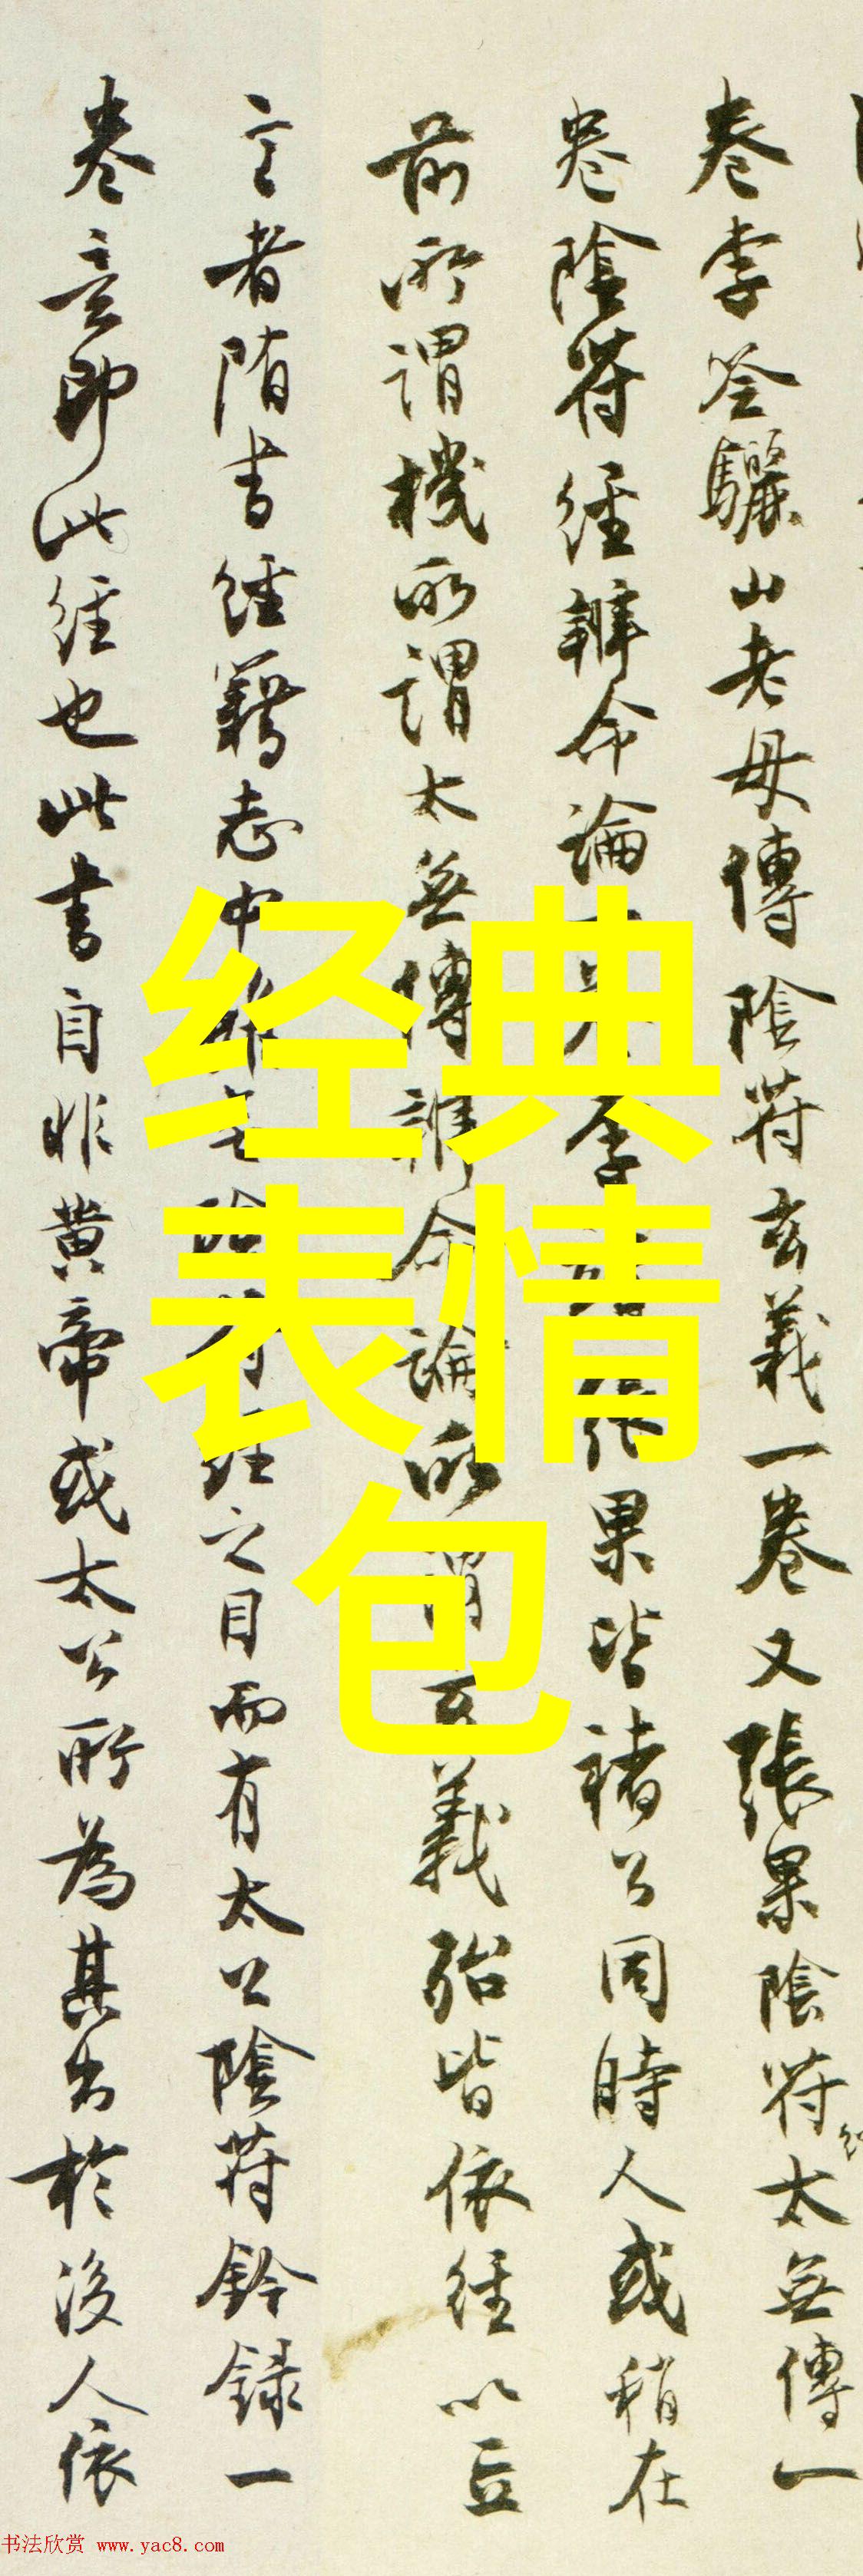 卷李筌驪山老母傳陰符玄義一卷又張果陰符太無傳一
卷陰符經辨命論李果皆褚公同時人或稍在
前所謂機所謂太無傳辨命論所謂玄義殆皆依經以立
言者隋書經籍志中陰符經之目而有太公陰符鈐録一
卷意即此經也此書自非黃帝或太公所為其出於後人依
经典
表情
包
书法欣赏 www.yac8.com